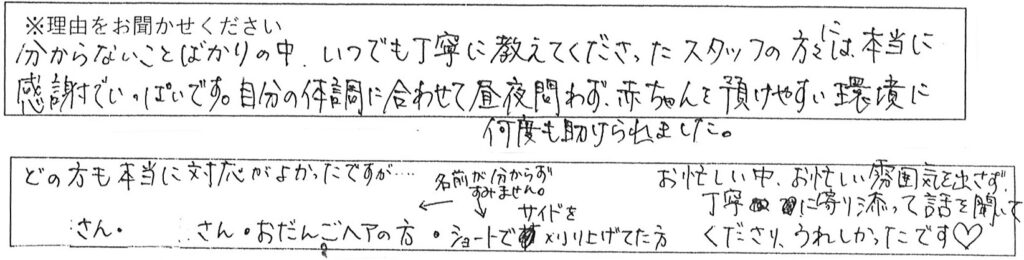 ※理由をお聞かせください
分からないことばかりの中、いつでも丁寧に教えてくださったスタッフの方々には、本当に
感謝でいっぱいです。自分の体調に合わせて昼夜問わず、赤ちゃんを預けやすい環境に
何度も助けられました。
どの方も本当に対応がよかったですが…
名前が分からず
すみません。
さん・ さん・おだんごヘアの方・ショートでサイドを刈り上げてた方
お忙しい中、お忙しい雰囲気を出さず、
丁寧に寄り添って話を聞いて
くださり、うれしかったです♡